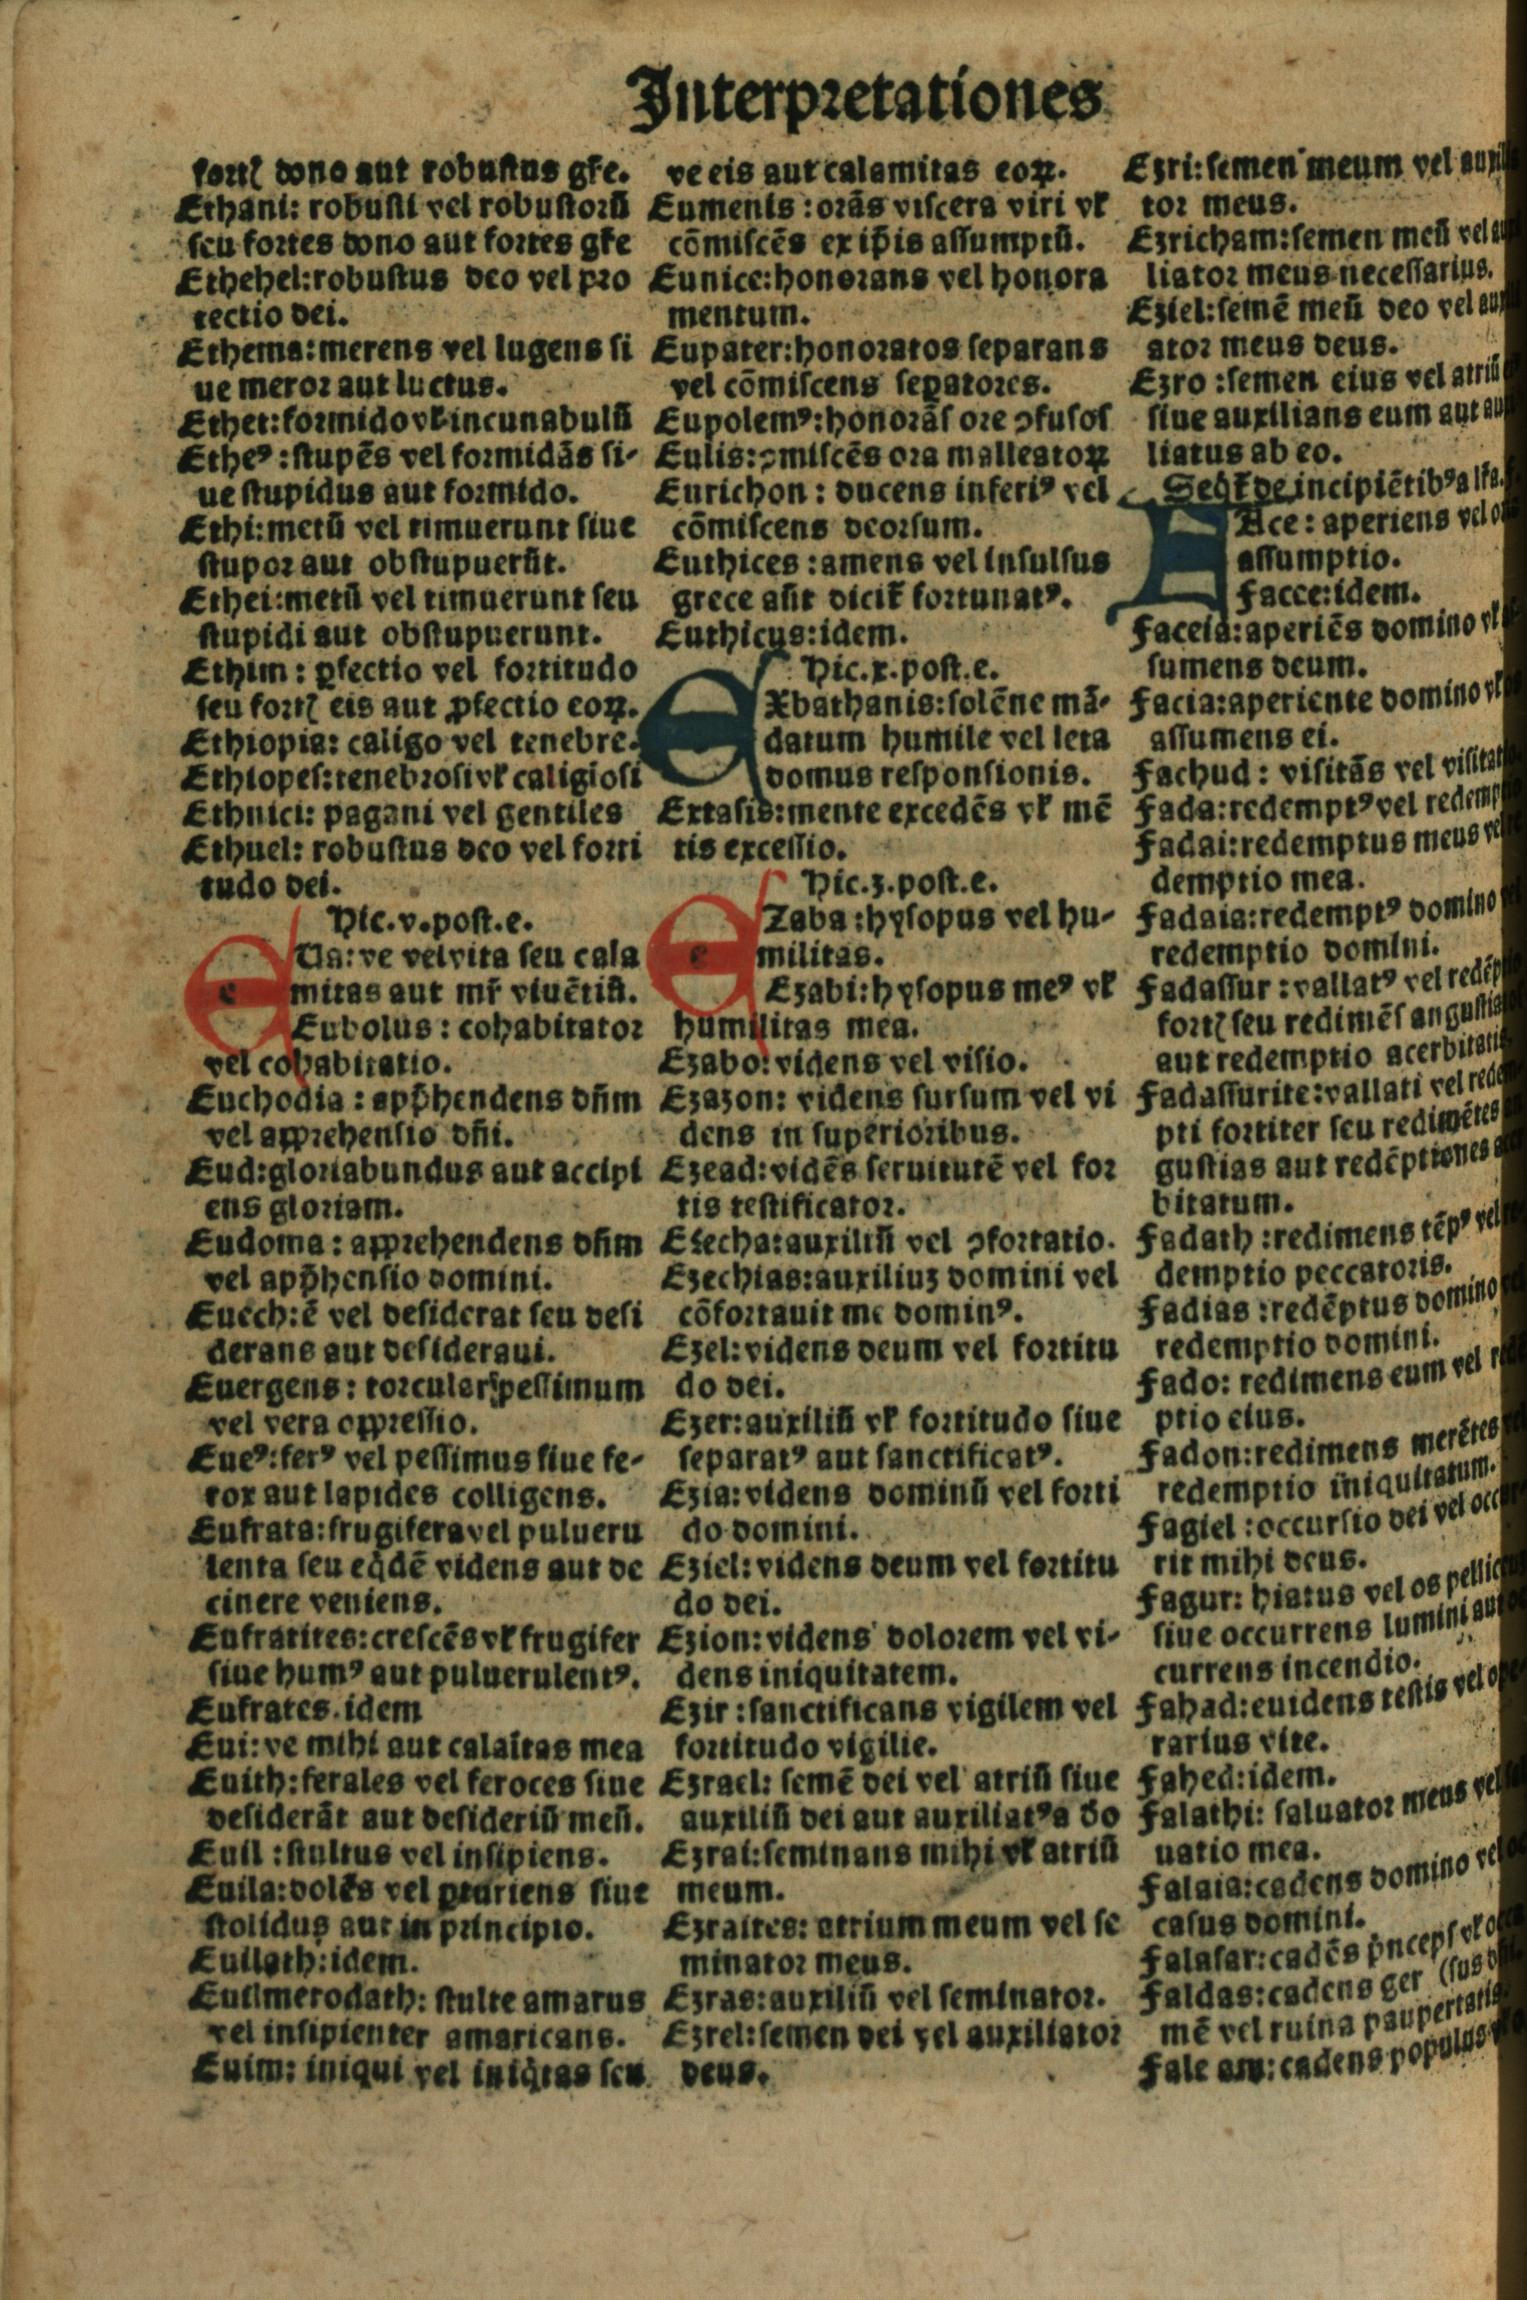 Interpretationes
fortꝭ dono aut robustus gr̄e.
Ethani: robusti vel robustorū
seu fortes dono aut fortes gr̄e
Ethehel: robustus deo vel pro
tectio dei.
Ethema: merens vel lugens si
ue meror aut luctus.
Ethet: formido vl̄ incunabulū
Etheꝰ: stupēs vel formidās si-
ue stupidus aut formido.
Ethi: metū vel timuerunt siue
stupor aut obstupuerūt.
Ethei: metū vel timuerunt seu
stupidi aut obstupuerunt.
Ethim: ꝑfectio vel fortitudo
seu fortꝭ eis aut ꝓfectio eoꝝ.
Ethiopia: caligo vel tenebre.
Ethiopes: tenebrosi vl̄ caligiosi
Ethnici: pagani vel gentiles
Ethuel: robustus deo vel forti
tudo dei.
Hic .v. post .e.
e Ua: ve vel vita seu cala
mitas aut mr̄ viuētiū.
Eubolus: cohabitator
vel cohabitatio.
Euchodia: app̄hendens dn̄m
vel apprehensio dn̄i.
Eud: gloriabundus aut accipi
ens gloriam.
Eudoma: apprehendens dn̄m
vel app̄hensio domini.
Euech: ē vel desiderat seu desi
derans aut desideraui.
Euergens: torcular pessimum
vel vera oppressio.
Eueꝰ: ferꝰ vel pessimus siue fe-
rox aut lapides colligens.
Eufrata: frugifera vel pulueru
lenta seu eq̄dē videns aut de
cinere veniens.
Eufratites: crescēs vl̄ frugifer
siue humꝰ aut puluerulentꝰ.
Eufrates. idem
Eui: ve mihi aut calaītas mea
Euith: ferales vel feroces siue
desiderāt aut desideriū meū.
Euil: stultus vel insipiens.
Euila: dolēs vel ꝑturiens siue
stolidus aut in principio.
Euilath: idem.
Euilmerodath: stulte amarus
vel insipienter amaricans.
Euim: iniqui vel iniq̄tas seu
ve eis aut calamitas eoꝝ.
Eumenis: orās viscera viri vl̄
cōmiscēs ex ip̄is assumptū.
Eunice: honorans vel honora
mentum.
Eupater: honoratos separans
vel cōmiscens seꝑatores.
Eupolemꝰ: honorās ore ꝯfusos
Eulis: ꝯmiscēs ora malleatoꝝ
Eurichon: ducens inferiꝰ vel
cōmiscens deorsum.
Euthices: amens vel insulsus
grece aūt dicit̄ fortunatꝰ.
Euthicus: idem.
Hic .x. post .e.
E Xbathanis: solēne mā-
datum humile vel leta
domus responsionis.
Extasis: mente excedēs vl̄ mē
tis excessio.
Hic .z. post .e.
e Zaba: hysopus vel hu-
militas.
Ezabi: hysopus meꝰ vl̄
humilitas mea.
Ezabo: videns vel visio.
Ezazon: videns sursum vel vi
dens in superioribus.
Ezead: vidēs seruitutē vel for
tis testificator.
Ezecha: auxiliū vel ꝯfortatio.
Ezechias: auxiliuz domini vel
cōfortauit me dominꝰ.
Ezel: videns deum vel fortitu
do dei.
Ezer: auxiliū vl̄ fortitudo siue
separatꝰ aut sanctificatꝰ.
Ezia: videns dominū vel forti
do domini.
Eziel: videns deum vel fortitu
do dei.
Ezion: videns dolorem vel vi-
dens iniquitatem.
Ezir: sanctificans vigilem vel
fortitudo vigilie.
Ezrael: semē dei vel atriū siue
auxiliū dei aut auxiliatꝰ a deo
Ezrai: seminans mihi vl̄ atriū
meum.
Ezraites: atrium meum vel se
minator meus.
Ezras: auxiliū vel seminator.
Ezrel: semen dei vel auxiliator
deus.
Ezri: semen meum vel
tor meus.
Ezricham: semen meū vel
liator meus necessarius.
Eziel: semē meū deo vel
ator meus deus.
Ezro: semen eius vel atriū
siue auxilians eum aut
liatus ab eo.
Seq̄t̄ de incipiētibꝰ a lr̄a. f.
Ace: aperiens vel
assumptio.
Facce: idem.
Faceia: aperiēs domino vl̄
sumens deum.
Facia: aperiente domino vl̄
assumens ei.
Fachud: visitās vel
Fada: redemptꝰ vel
Fadai: redemptus meus
demptio mea.
Fadaia: redemptꝰ domino
redemptio domini.
Fadassur: vallatꝰ vel
fortꝭ seu redimēs
aut redemptio acerbitatis
Fadassurite: vallati vel
pti fortiter seu redimētes
gustias aut redēptiones
bitatum.
Fadath: redimens tēpꝰ vel
demptio peccatoris.
Fadias: redēptus domino
redemptio domini.
Fado: redimens eum vel
ptio eius.
Fadon: redimens merētes
redemptio iniquitatum.
Fagiel: occursio dei vel
rit mihi deus.
Fagur: hiatus vel os
siue occurrens lumini
currens incendio.
Fahad: euidens testis vel
rarius vite.
Fahed: idem.
Falathi: saluator meus vel
uatio mea.
Falaia: cadens domino vel
casus domini.
Falasar: cadēs p̄nceps vl̄
Faldas: cadens ger (sus
mē vel ruina paupertatis.
Fale am: cadens populus